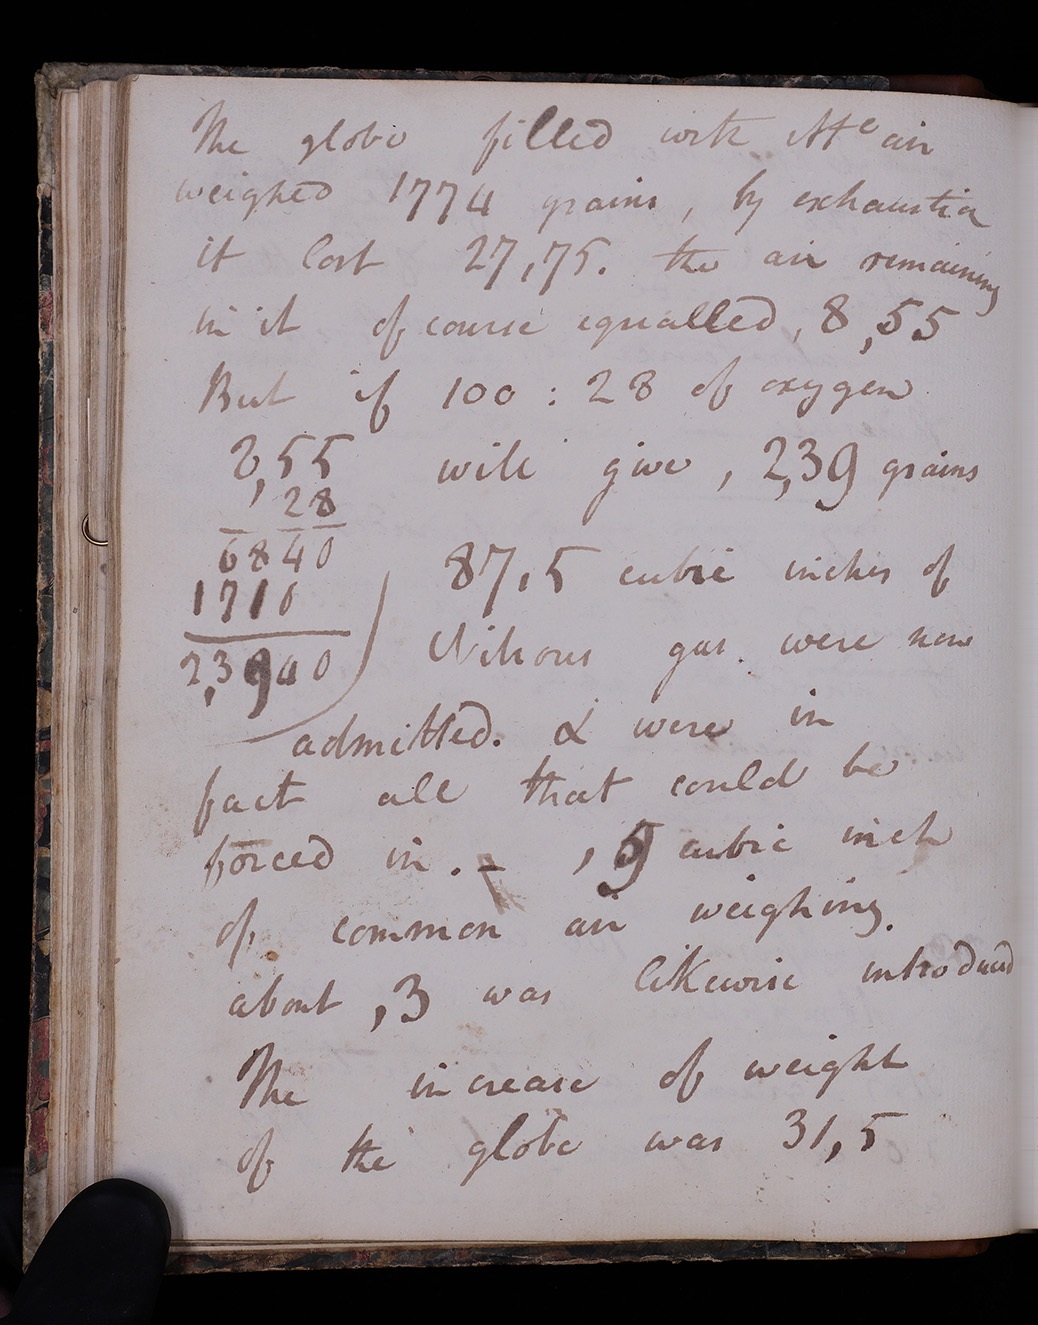 The globe filled with Atte air
weighed 1774 grains, by exhaustion
it lost 27,75. the air remaining
in it of course equalled, 8,55
But if 100 : 28 of oxygen
8,55 will give, 2,39 grains
28
6840
1710
2,3940
87,5 cubic inches of
Nitrous gas. were now
admitted. & were in
fact all that could be
forced in. - ,9 cubic inch
of, common air weighing.
about ,3 was likewise introduced
The increase of weight
of the globe was 31,5